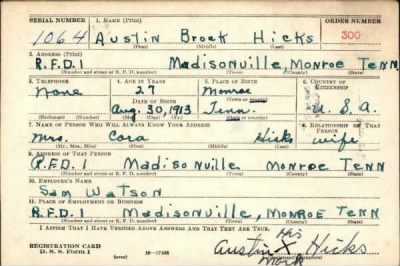 SERIAL NUMBER 1. NAME (Print) ORDER NUMBER
1064 Austin Brock Hicks 300
(First) (Middle) (Last)
2. ADDRESS (Print)
R.F.D.1 Madisonville, Monroe Tenn
(Number and street or R. F. D. number) (Town) (County) (State)
3. TELEPHONE 4. AGE IN YEARS 5. PLACE OF BIRTH 6. COUNTRY OF CITIZENSHIP
None 27 Monroe
DATE OF BIRTH (Town or county)
Aug. 30, 1913 Tenn. U.S.A.
(Exchange) (Number) (Mo.) (Day) (Yr.) (State or country)
7. NAME OF PERSON WHO WILL ALWAYS KNOW YOUR ADDRESS 8. RELATIONSHIP OF THAT PERSON
Mrs. Cora Hicks wife
(Mr., Mrs., Miss) (First) (Middle) (Last)
9. ADDRESS OF THAT PERSON
R.F.D.1 Madisonville Monroe Tenn
(Number and street or R. F. D. number) (Town) (County) (State)
10. EMPLOYER'S NAME
Sam Watson
11. PLACE OF EMPLOYMENT OR BUSINESS
R.F.D.1 Madisonville, Monroe Tenn
(Number and street or R. F. D. number) (Town) (County) (State)
I AFFIRM THAT I HAVE VERIFIED ABOVE ANSWERS AND THAT THEY ARE TRUE.
REGISTRATION CARD his
D. S. S. Form 1 (over) 16-17105 Austin X Hicks
mark